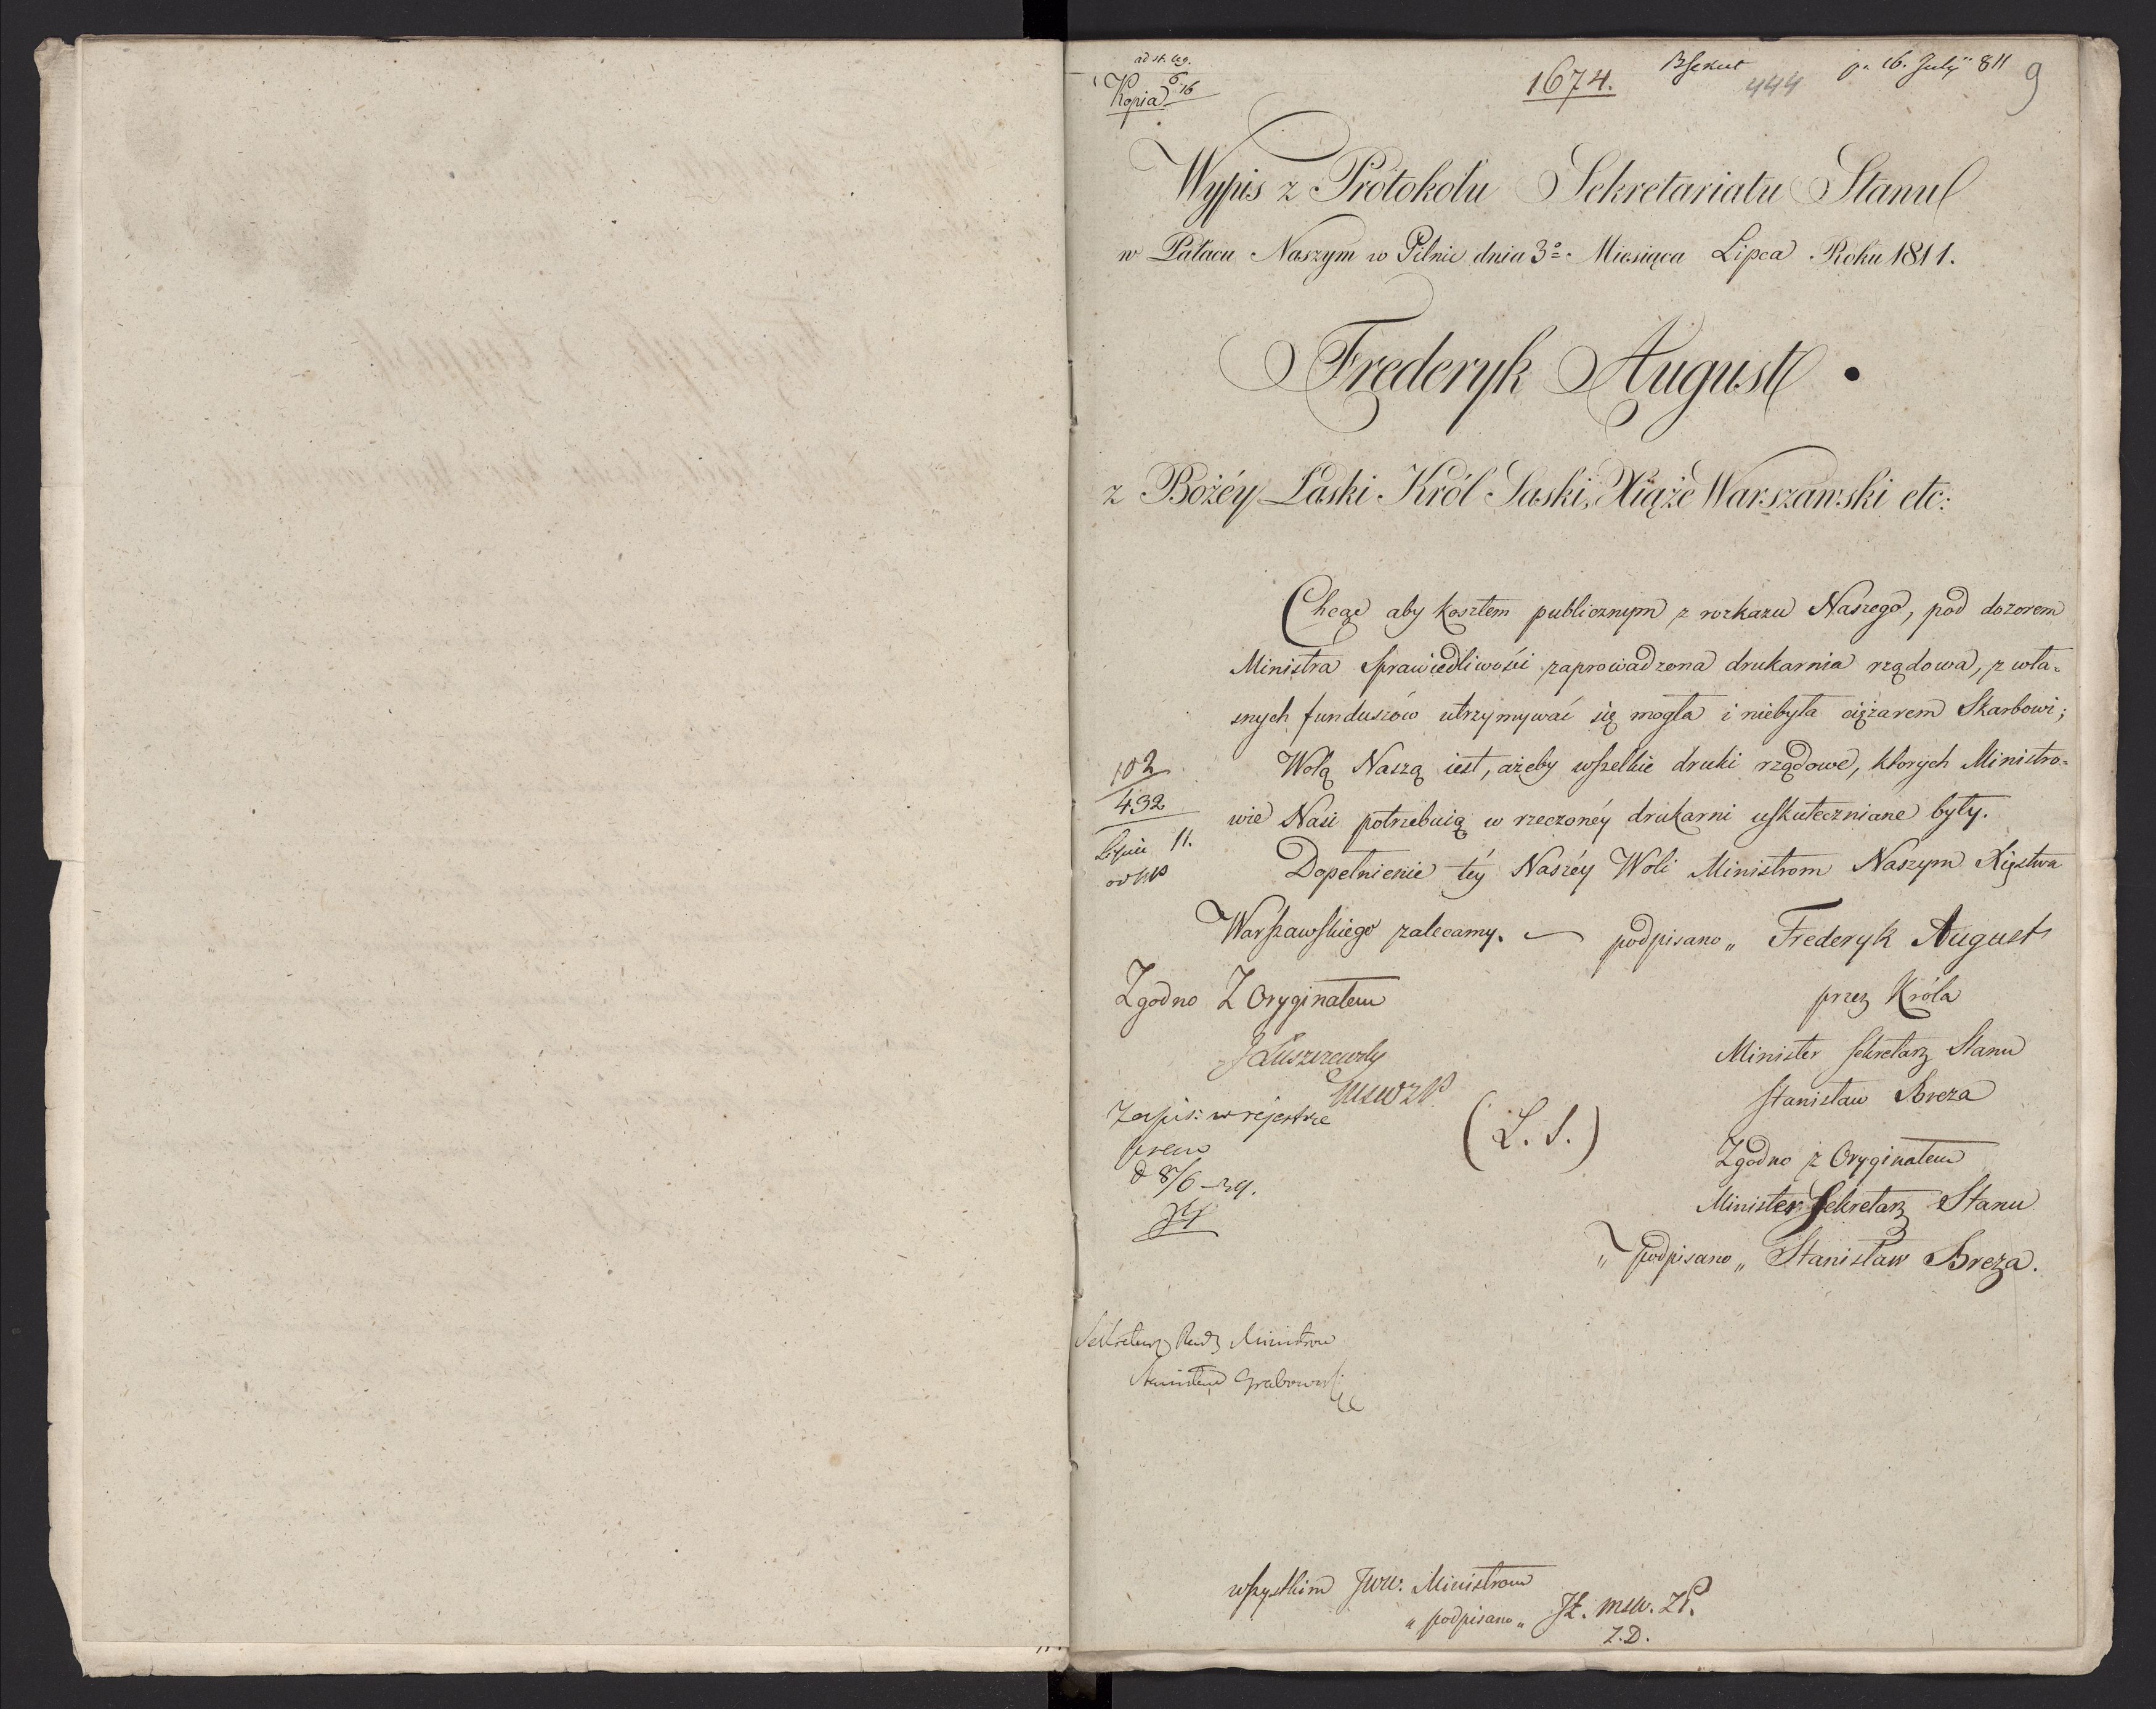 Kopia
1674.
444
p. 16. July 811
9
Wypis z Protokołu Sekretariatu Stanu
w Pałacu Naszym w Pilnic dnia 3º Miesiąca Lipca Roku 1811.
Frederyk August
z Bożéy Łaski Król Saski, Xiąże Warszawski etc:
Chcąc aby kosztem publicznym z rozkazu Naszego, pod dozorem
Ministra Sprawiedliwości zaprowadzona drukarnia rządowa, z wła=
snych funduszów utrzymywać się mogła i niebyła ciężarem Skarbowi;
Wolą Naszą iest, ażeby wszelkie druki rządowe, których Ministro=
wie Nasi potrzebuią w rzeczonéy drukarni uskuteczniane były.
Dopełnienie téy Naszéy Woli Ministrom Naszym Xięstwa
Warszawskiego zalecamy. — podpisano „ Frederyk August
102
432
11.
Zgodno Z Oryginałem
przez Króla
Minister Sekretarz Stanu
Stanisław Breza
JŁuszczewsky
MSWZP
Zapis: w rejestrze
(L. S.)
Zgodno z Oryginałem
Minister Sekretarz Stanu
„ podpisano „ Stanisław Breza.
Sekretarz Rady Ministrów
Stanisław Grabowski
wszystkim JWW. Ministrom
„ podpisano „ JŁ. MSW. ZP.
Z.D.